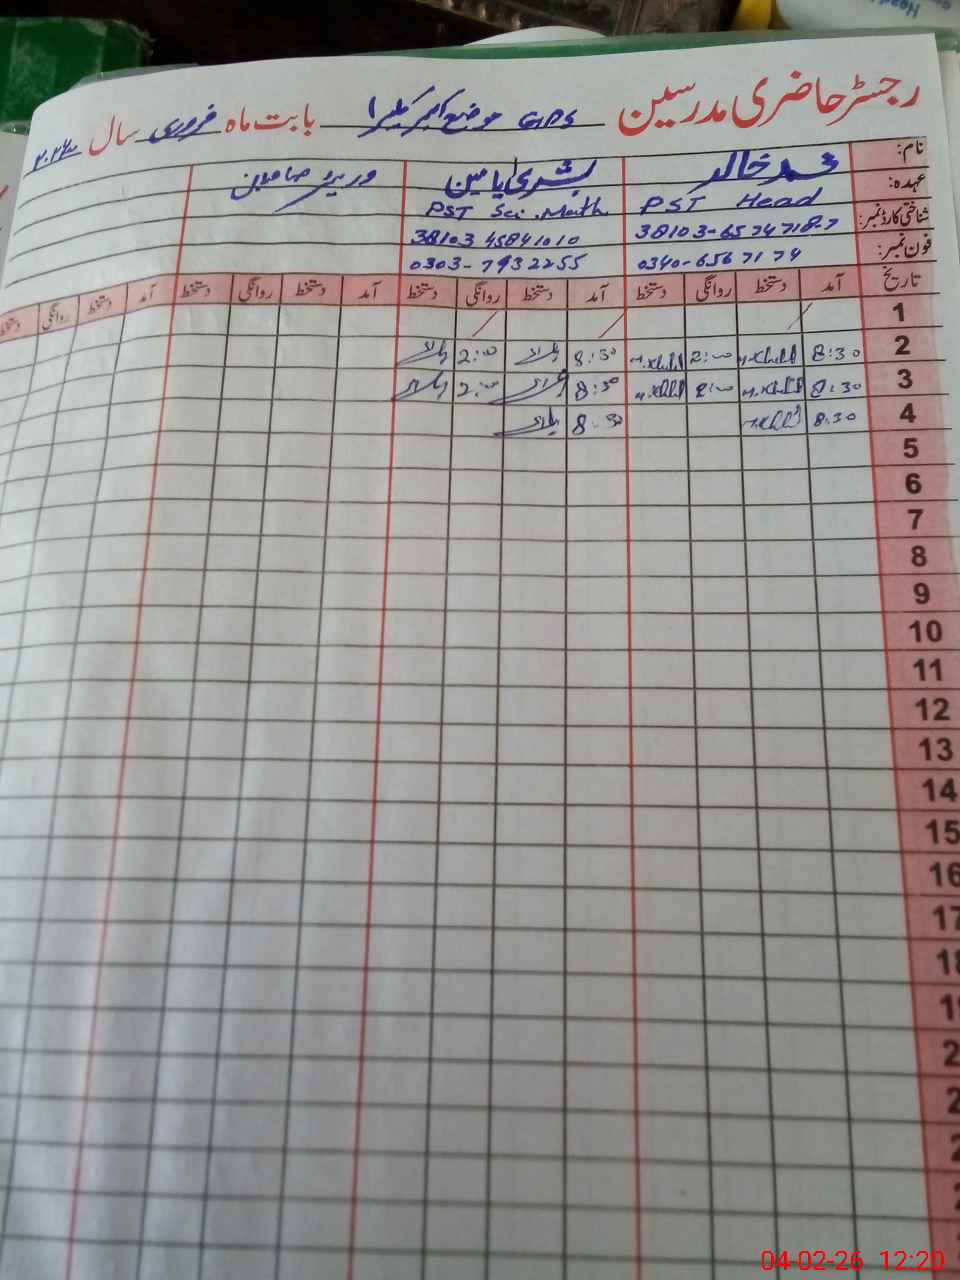 رجسٹر حاضری مدرسین GPS موضع بابت ماہ فروری سال ۲۰۲۶
نام: محمد خالد بشریٰ یامین
عہدہ: PST Head PST Sci. Math
شناختی کارڈ نمبر: 38103-6574718-7 38103 45841010
فون نمبر: 0340-6567174 0303-7932255
تاریخ آمد دستخط روانگی دستخط آمد دستخط روانگی دستخط آمد دستخط روانگی دستخط آمد دستخط روانگی دستخط
1
2 8:30 M.Khalid 2:00 M.Khalid 8:30 2:00
3 8:30 M.Khalid 2:00 M.Khalid 8:30 2:00
4 8:30 M.Khalid 8:30
5
6
7
8
9
10
11
12
13
14
15
16
17
18
04-02-26 12:20